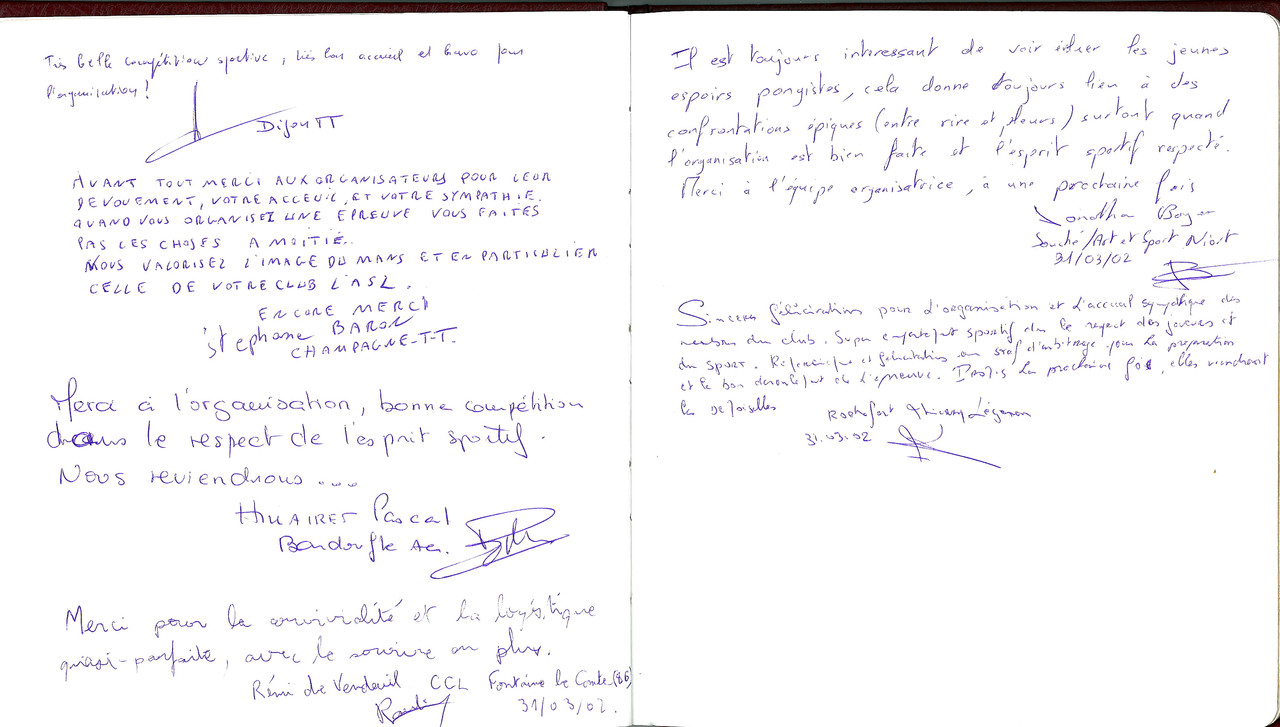 Très belle compétition sportive, très bon accueil et bravo pour
l'organisation !
Dijon TT
AVANT TOUT MERCI AUX ORGANISATEURS POUR LEUR
DEVOUEMENT, VOTRE ACCEUIL, ET VOTRE SYMPATHIE.
QUAND VOUS ORGANISEZ UNE EPREUVE VOUS FAITES
PAS LES CHOSES A MOITIÉ.
NOUS VALORISEZ L'IMAGE DU MANS ET EN PARTICULIER
CELLE DE VOTRE CLUB L'ASL.
ENCORE MERCI
Stephane BARON
CHAMPAGNE-T-T.
Merci à l'organisation, bonne compétition
dans le respect de l'esprit sportif.
Nous reviendrons ...
HILAIRET Pascal
Bondoufle
Merci pour la convividité et la logistique
quasi-parfaite, avec le sourire en plus.
Rémi de Vendeuil CCL Fontaine le Comte (86)
31/03/02.
Il est toujours interessant de voir les jeunes
espoirs pongistes, cela donne toujours lieu à des
confrontations épiques (entre rire et pleurs) surtout quand
l'organisation est bien faite et l'esprit sportif respecté.
Merci à l'équipe organisatrice, à une prochaine fois
Jonathan Boyer
Souché/Art et Sport Niort
31/03/02
Sinceres félicitations pour l'organisation et l'accueil sympathique des
membres du club. Super sportif dans le respect des joueurs et
du sport. et félicitations au staf d'arbitrage pour la preparation
et le bon deroulement de l'epreuve. la prochaine fois, elles viendront
les Demoiselles
Rochefort Thierry Légeron
31.03.02